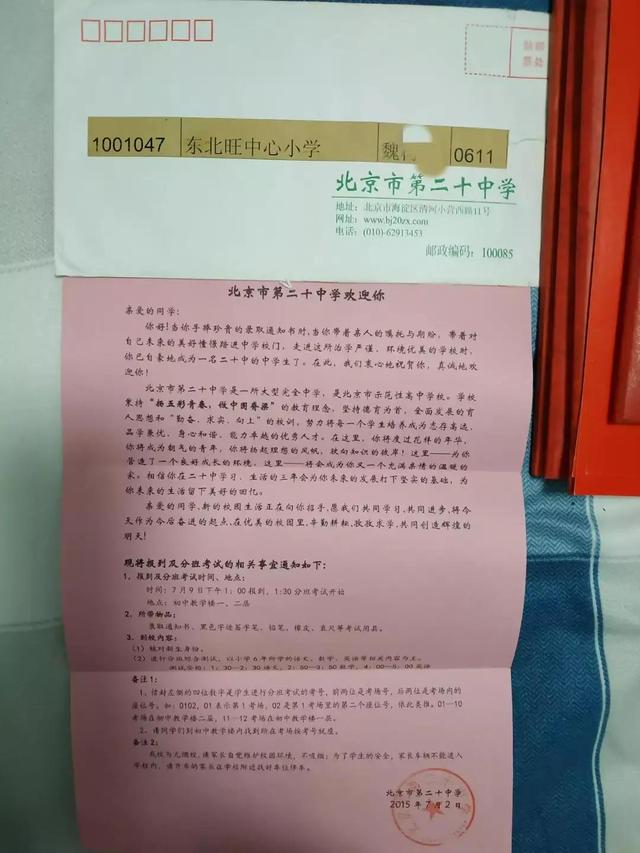 贴邮
票处
1001047 东北旺中心小学 魏 0611
北京市第二十中学
地址：北京市海淀区清河小营西路11号
网址：www.bj20zx.com
电话：(010)-62913453
邮政编码：100085
北京市第二十中学欢迎你
亲爱的同学：
你好！当你手捧珍贵的录取通知书时，当你带着亲人的嘱托与期盼，带着对
自己未来的美好憧憬踏进中学校门，走进这所治学严谨、环境优美的学校时，
你已自豪地成为一名二十中的中学生了。在此，我们衷心地祝贺你，真诚地欢
迎你！
北京市第二十中学是一所大型完全中学，是北京市示范性高中学校。学校
秉持“扬五彩青春，做中国脊梁”的教育理念，坚持德育为首，全面发展的育
人思想和“勤奋、求实、向上”的校训，努力将每一个学生培养成为志存高远、
品学兼优、身心和谐、能力卓越的优秀人才。在这里，你将度过花样的年华，
你将成为朝气的青年，你将扬起理想的风帆，驶向知识的彼岸！这里——为你
营造了一个良好成长的环境，这里——将会成为你又一个充满亲情的温暖的
家。相信你在二十中学习、生活的三年会为你未来的发展打下坚实的基础，为
你未来的生活留下美好的回忆。
亲爱的同学，新的校园生活正在向你招手，愿我们共同学习，共同进步，将今
天作为今后奋进的起点，在优美的校园里，辛勤耕耘，孜孜求学，共同创造辉煌的
明天！
现将报到及分班考试的相关事宜通知如下：
1、报到及分班考试时间、地点：
时间：7月9日下午1：00报到，1:30分班考试开始
地点：初中教学楼一、二层
2、所带物品：
录取通知书、黑色字迹签字笔、铅笔、橡皮、直尺等考试用具。
3、到校内容：
（1）核对新生身份。
（2）进行分班综合测试，以小学6年所学的语文、数学、英语等相关内容为主。
测试安排：1：30—2：30语文，2：50—3：50数学，4：00—5：00英语
备注1：
1、信封左侧的四位数字是学生进行分班考试的考号，前两位是考场号，后两位是考场内的
座位号。如：0102，01表示第1考场，02是第1考场里的第二个座位号，依此类推。01—10
考场在初中教学楼二层，11—12考场在初中教学楼一层。
2、请同学们到初中教学楼内找到所在考场按考号就座。
备注2：
我校为无烟校，请家长自觉维护校园环境，不吸烟；为了学生的安全，家长车辆不能进入
学校内，请开车的家长在学校附近找好车位停车。
北京市第二十中学
2015年7月2日